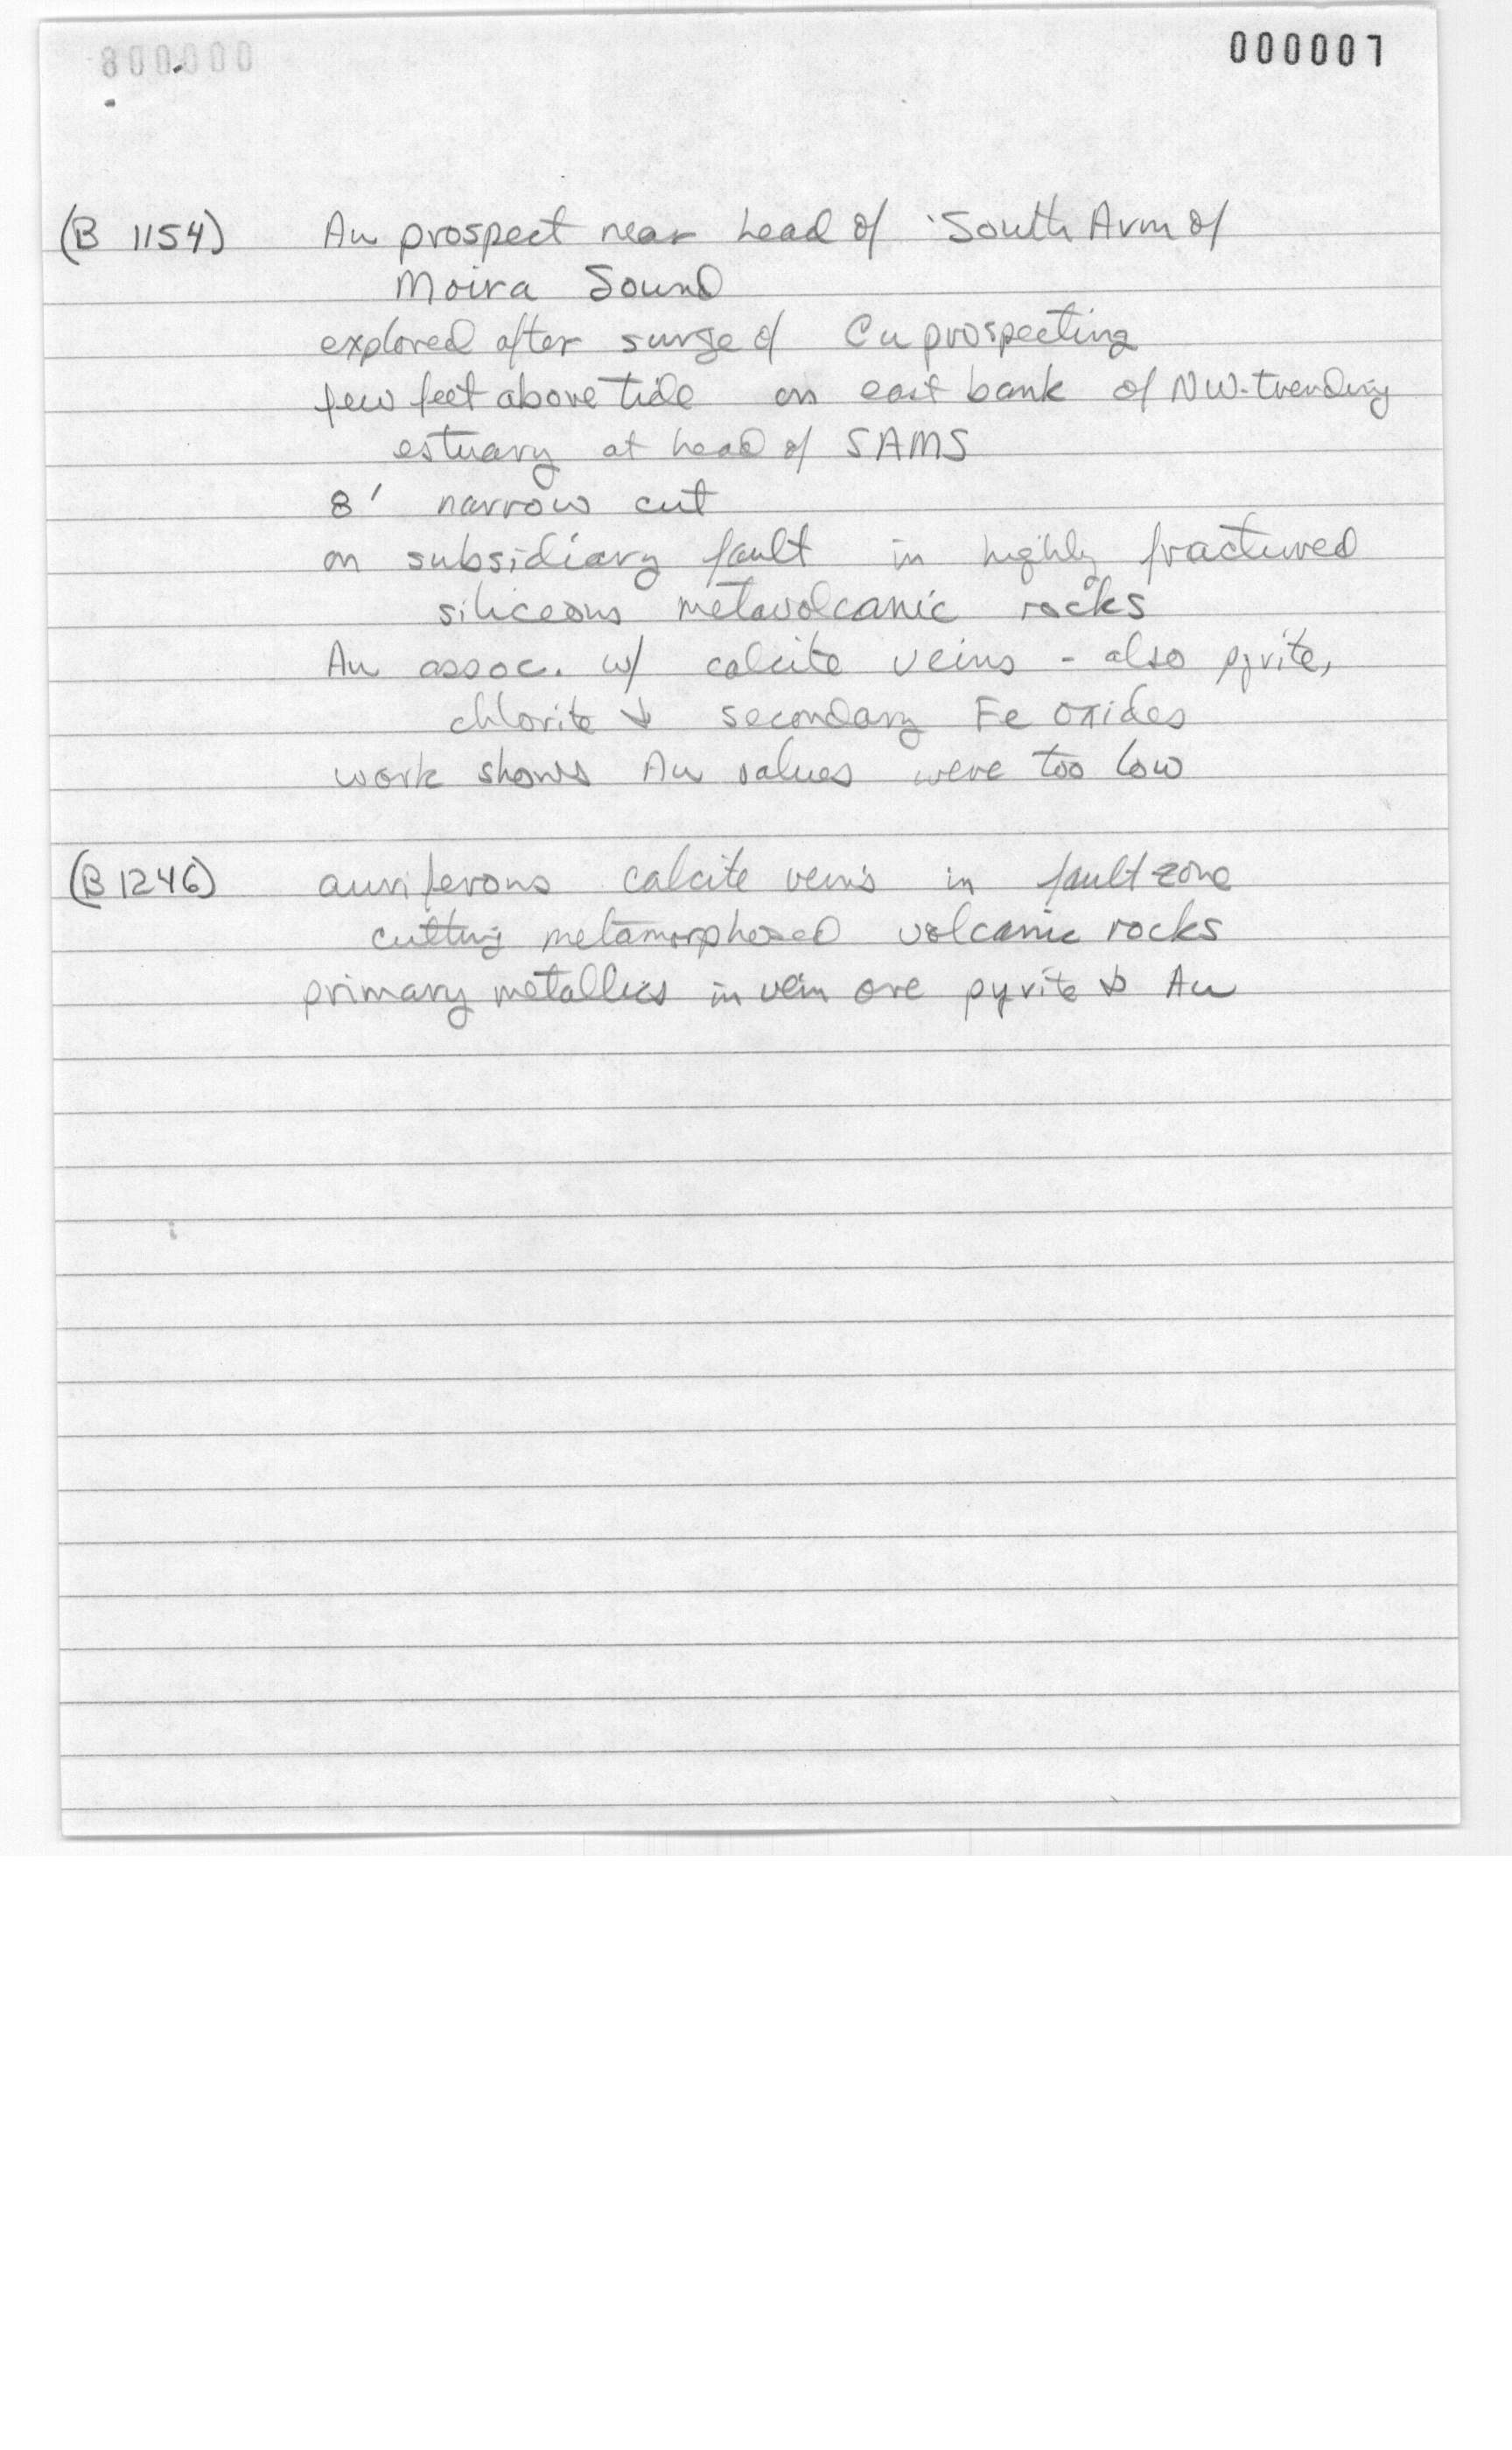 000007
(B 1154) Au prospect near head of South Arm of
Moira Sound
explored after surge of Cu prospecting
few feet above tide on east bank of NW-trending
estuary at head of SAMS
8' narrow cut
on subsidiary fault in highly fractured
siliceous metavolcanic rocks
Au assoc. w/ calcite veins - also pyrite,
chlorite & secondary Fe oxides
work shows Au values were too low
(B 1246) auriferous calcite veins in fault zone
cutting metamorphosed volcanic rocks
primary metallics in vein ore pyrite & Au